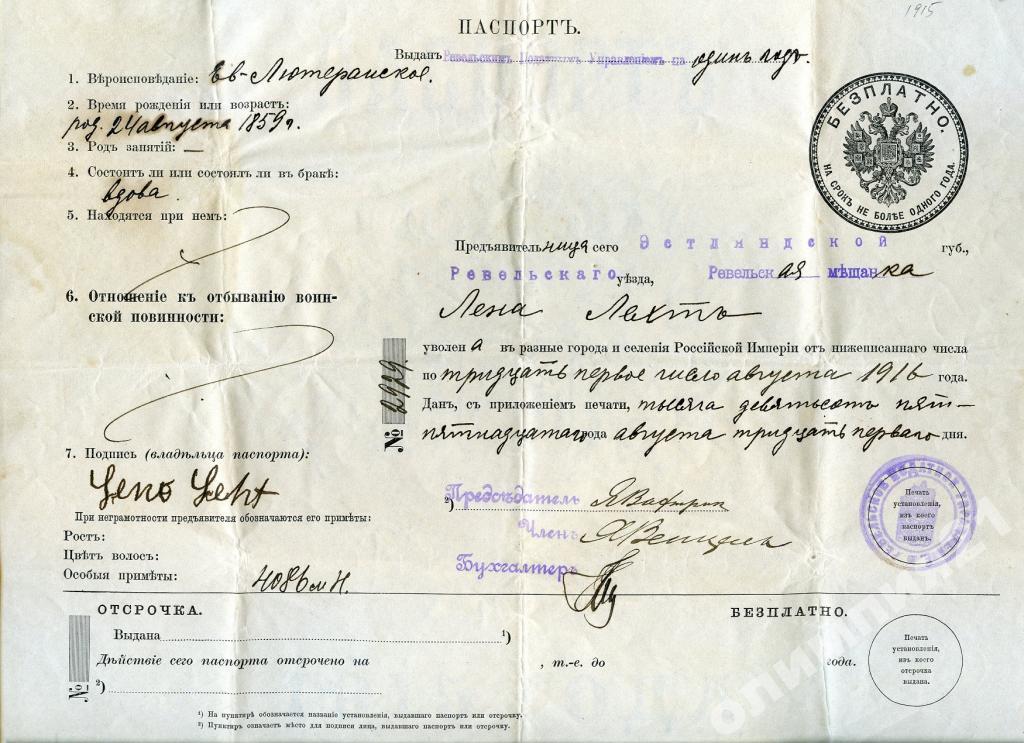 1915
ПАСПОРТЪ.
Выданъ Ревельскимъ Податнымъ Управленіемъ на одинъ годъ.
1. Вѣроисповѣданіе: Ев-Лютеранское.
2. Время рожденія или возрастъ:
род. 24 августа 1859 г.
3. Родъ занятій: —
4. Состоитъ ли или состоялъ ли въ бракѣ:
вдова.
5. Находятся при немъ:
6. Отношеніе къ отбыванію воин-
ской повинности:
7. Подпись (владѣльца паспорта):
При неграмотности предъявителя обозначаются его примѣты:
Ростъ:
Цвѣтъ волосъ:
Особыя примѣты:
БЕЗПЛАТНО.
НА СРОКЪ НЕ БОЛѢЕ ОДНОГО ГОДА.
Предъявительница сего Эстляндской губ.,
Ревельскаго уѣзда, Ревельская мѣщанка
Лена Лехтъ
уволена въ разные города и селенія Россійской Имперіи отъ нижеписаннаго числа
по тридцать первое число августа 1916 года.
Данъ, съ приложеніемъ печати, тысяча девятьсотъ пят-
пятнадцатаго года августа тридцать перваго дня.
№ 2929
2) Предсѣдатель
Членъ
Бухгалтеръ
Печать
установленія,
изъ коего
паспортъ
выданъ.
ОТСРОЧКА.
БЕЗПЛАТНО.
Выдана 1)
Дѣйствіе сего паспорта отсрочено на , т.-е. до года.
2)
№
Печать
установленія,
изъ коего
отсрочка
выдана.
1) На пунктирѣ обозначается названіе установленія, выдавшаго паспортъ или отсрочку.
2) Пунктиръ означаетъ мѣсто для подписи лица, выдавшаго паспортъ или отсрочку.